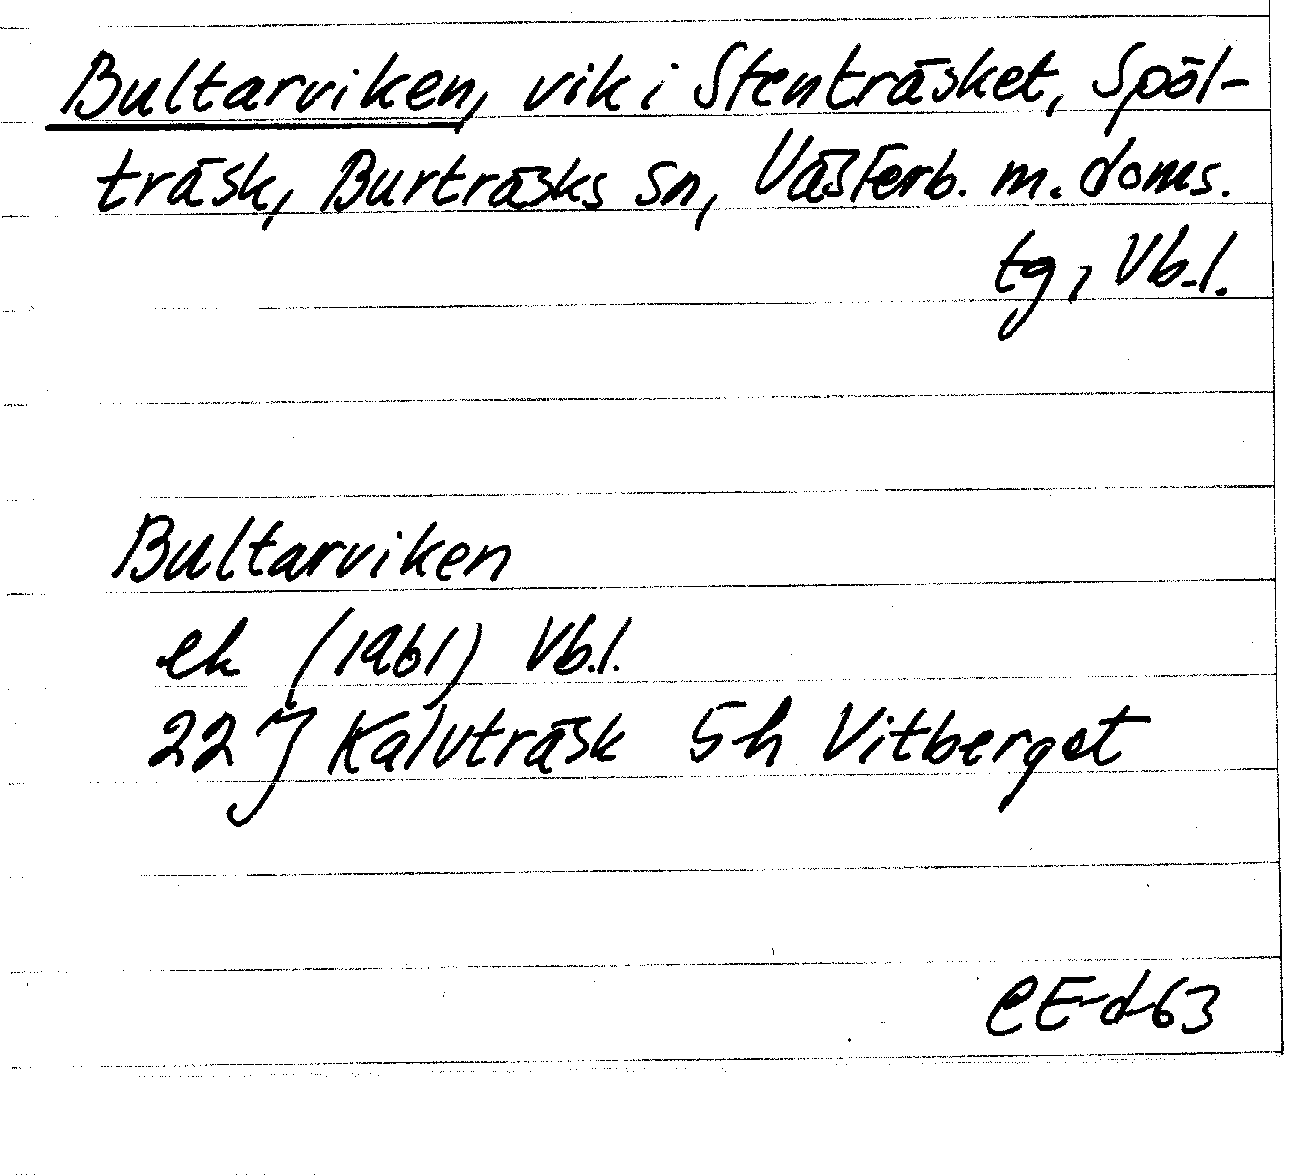 Bultarviken, vik i Stenträsket, Spöl-
träsk, Burträsks sn, Västerb. m. doms.
tg, Vb.l.
Bultarviken
ek (1961) Vb.l.
22 J Kalvträsk 5h Vitberget
CE-d-63